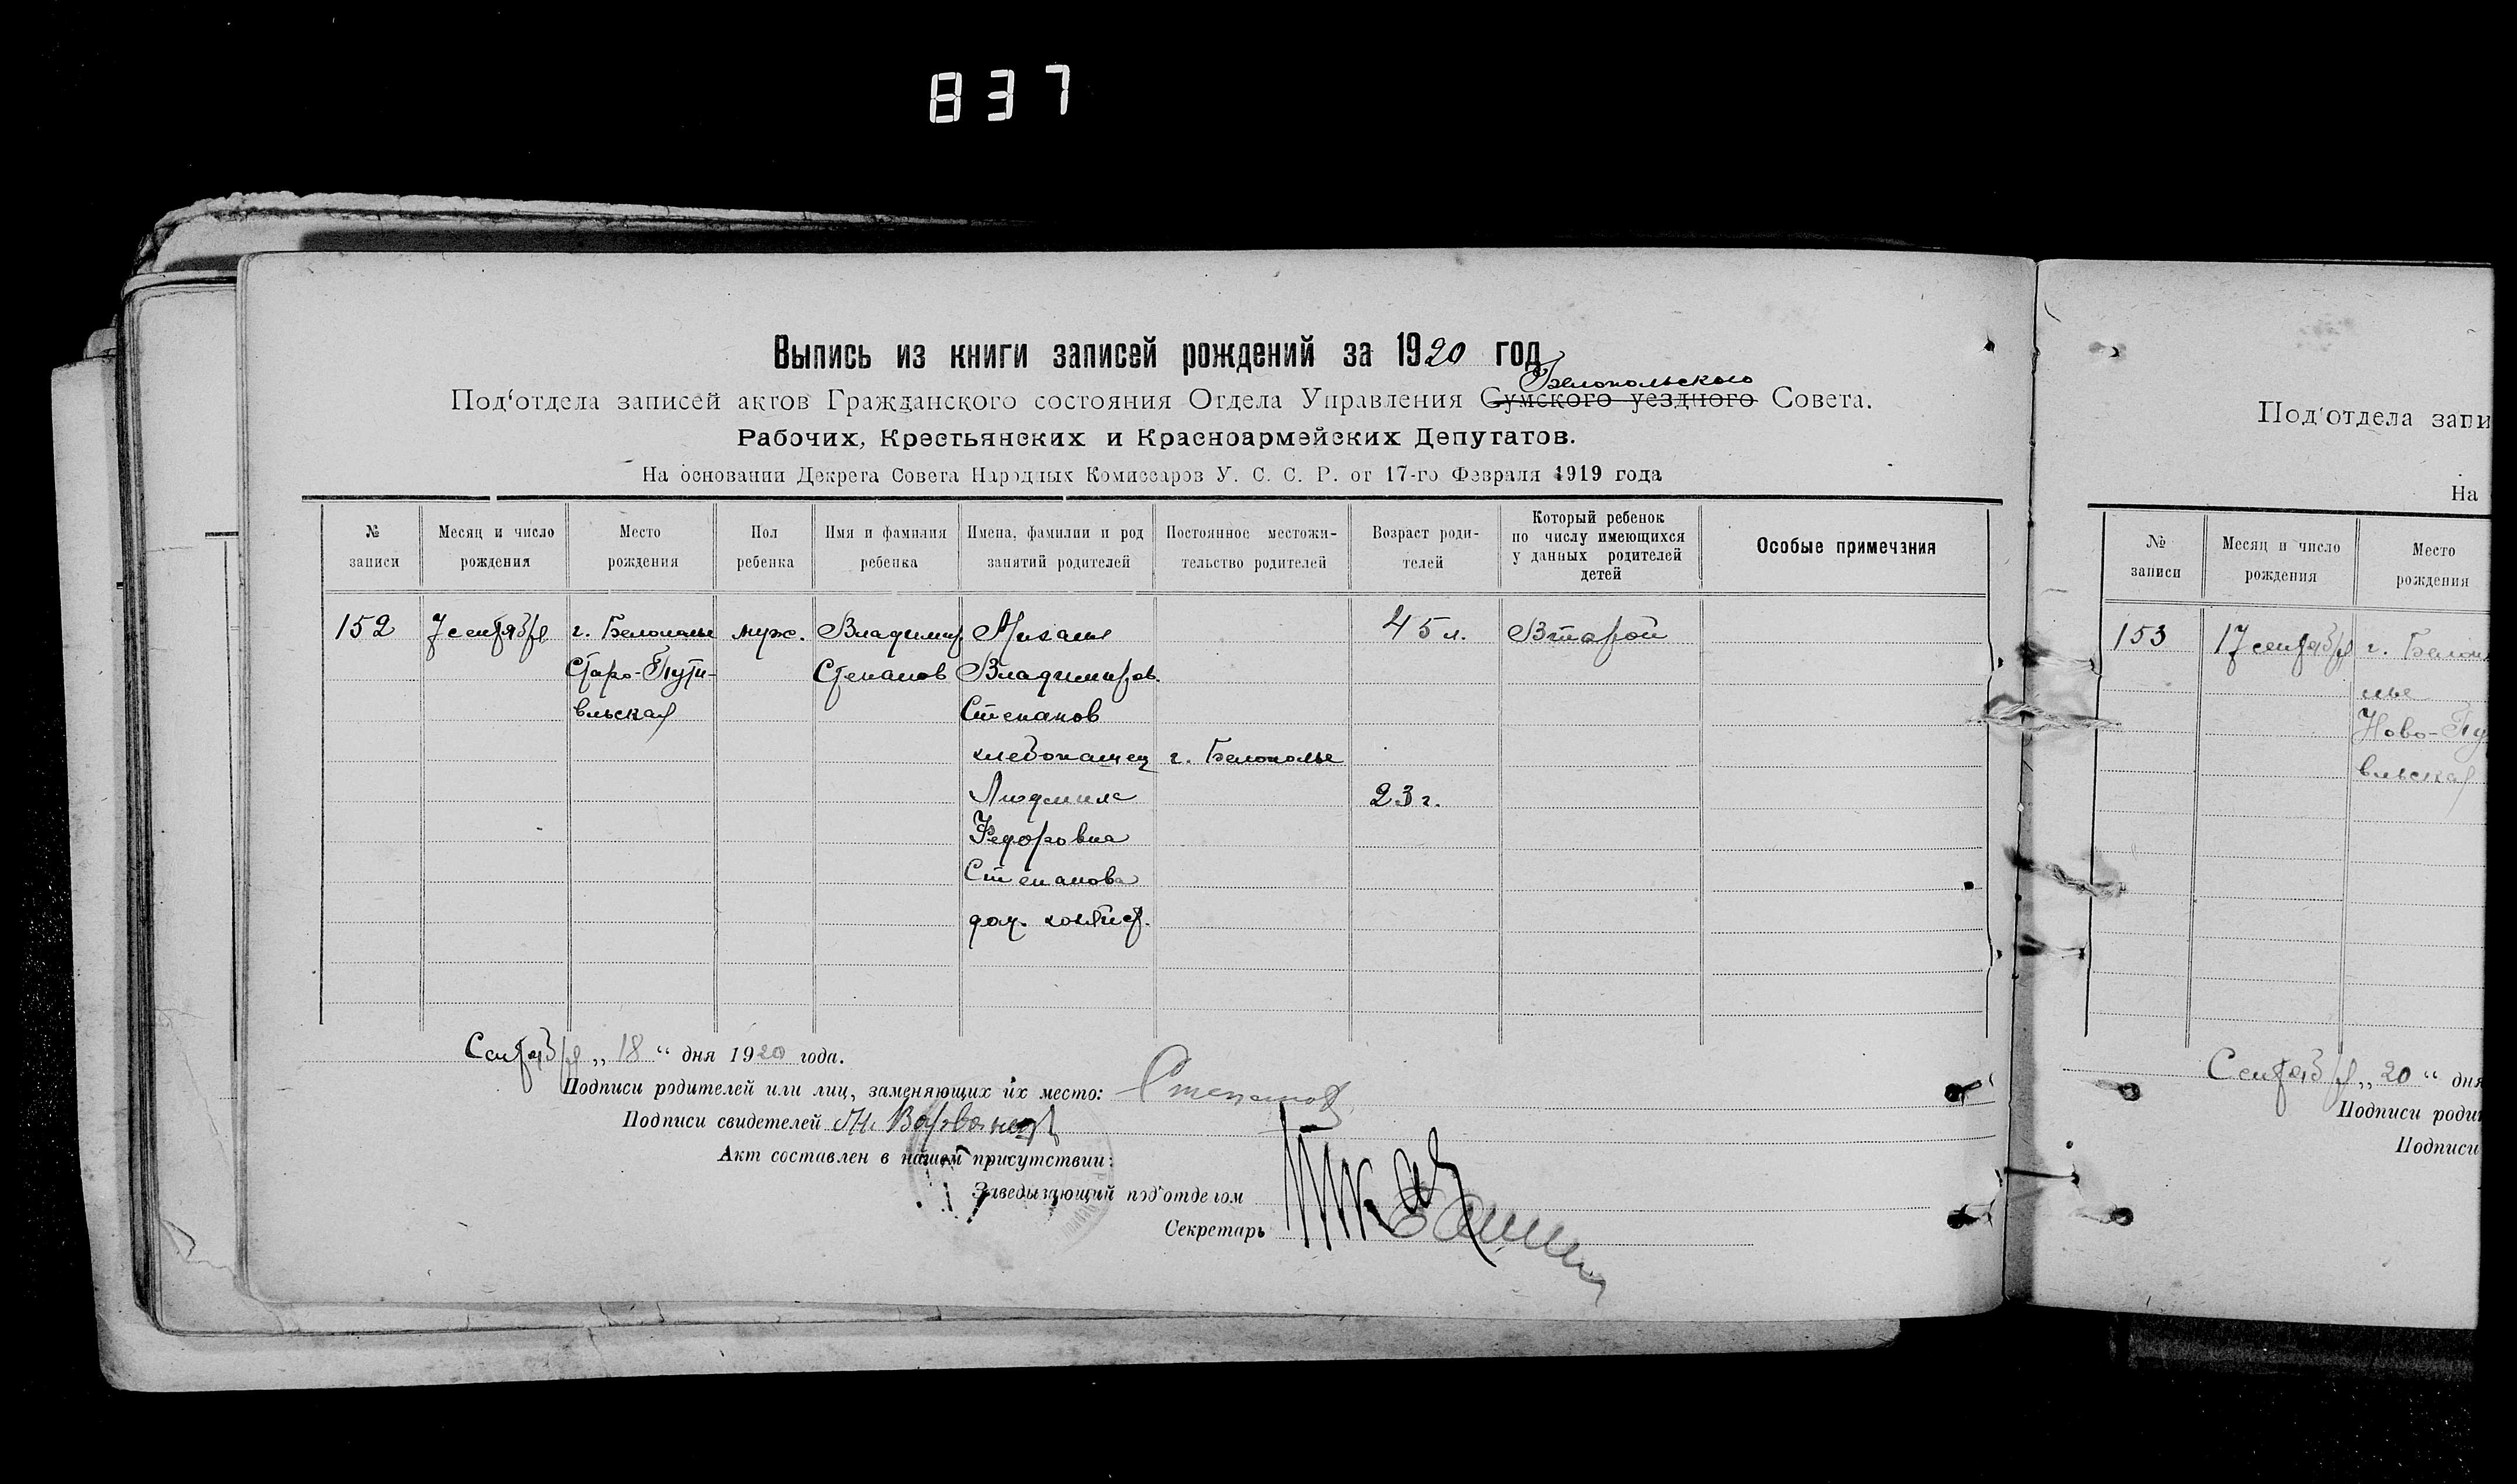 837
Выпись из книги записей рождений за 1920 год
Белопольского
Под'отдела записей актов Гражданского состояния Отдела Управления Сумского уездного Совета.
Рабочих, Крестьянских и Красноармейских Депутатов.
На основании Декрета Совета Народных Комиссаров У. С. С. Р. от 17-го Февраля 1919 года
№ записи
Месяц и число рождения
Место рождения
Пол ребенка
Имя и фамилия ребенка
Имена, фамилии и род занятий родителей
Постоянное местожительство родителей
Возраст родителей
Который ребенок по числу имеющихся у данных родителей детей
Особые примечания
152 7 сентября г. Белополье муж. Владимир Михаил 45 л. Второй
Старо-Пути- Степанов Владимиров.
вльская Степанов
хлебопашец г. Белополье
Людмила 23 г.
Федоровна
Степанова
дом. хозяйст.
Сентября „ 18 “ дня 1920 года.
Подписи родителей или лиц, заменяющих их место: Степанов
Подписи свидетелей
Акт составлен в нашем присутствии:
Заведывающий под'отделом
Секретарь
Под'отдела запи
На
№ записи
Месяц и число рождения
Место рождения
153 17 сентября г. Белопо
лье
Ново-Пу
вльская
Сентября „ 20 “ дня
Подписи роди
Подписи